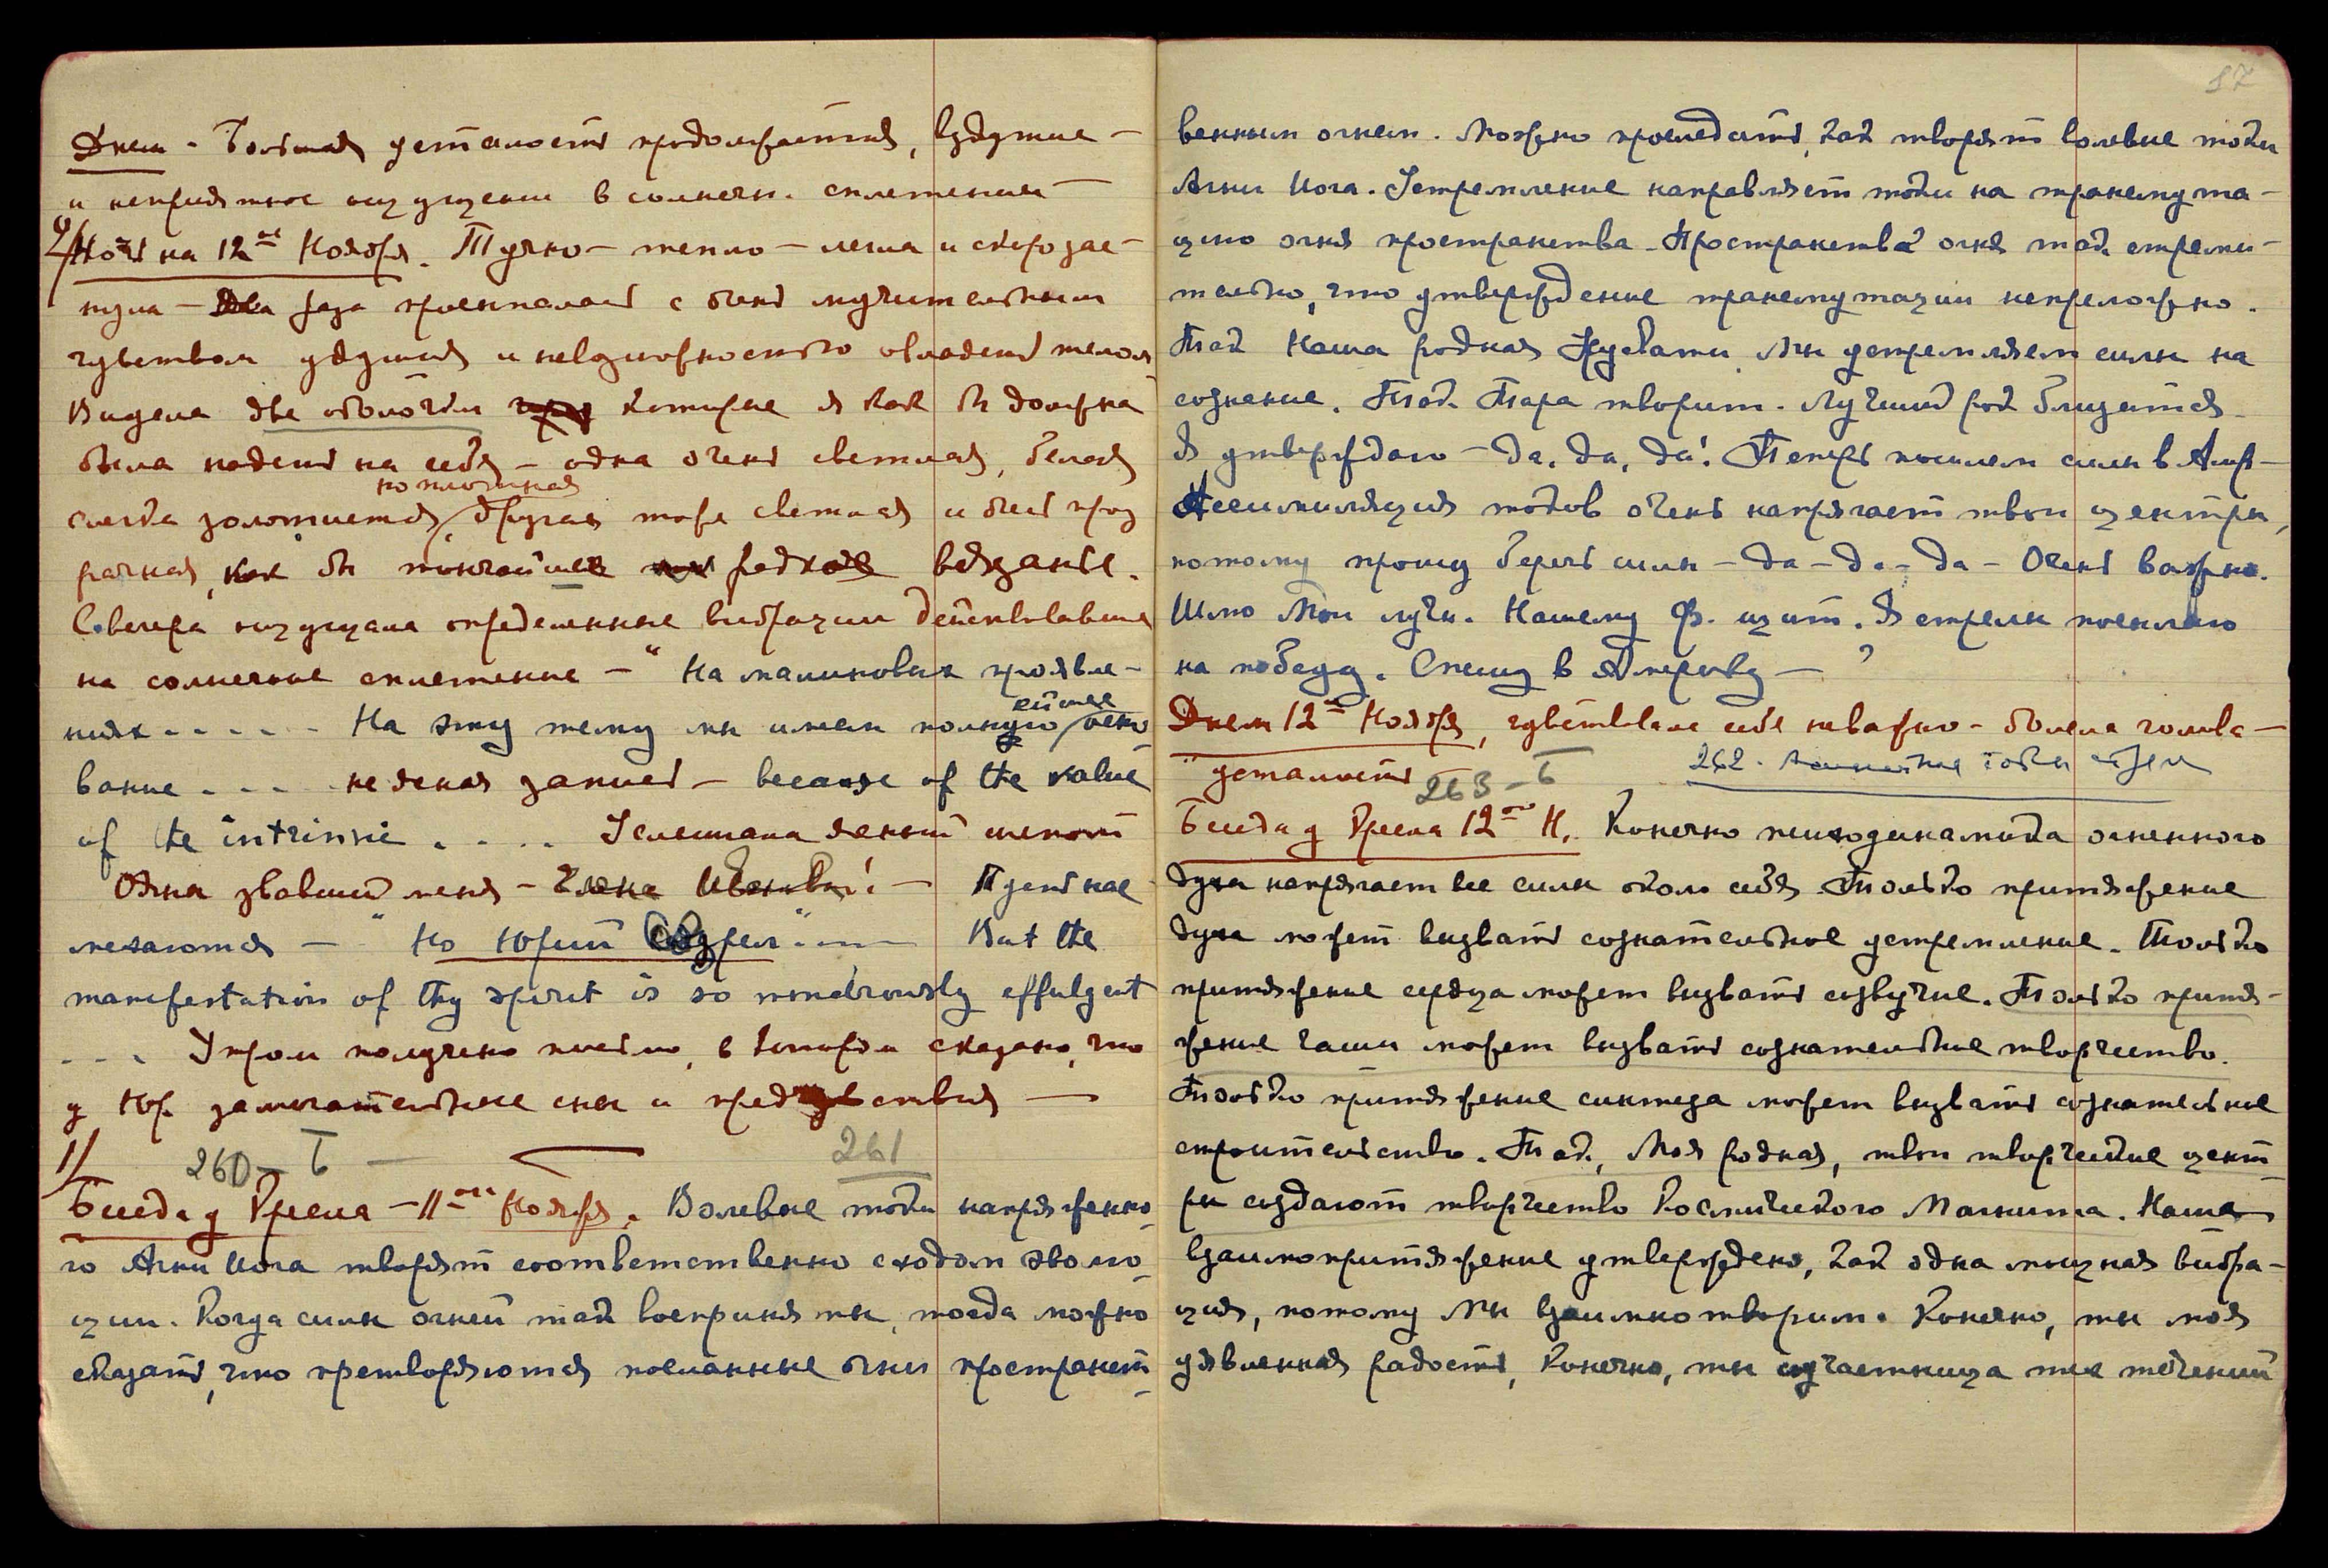 87
Днем - Большая усталость продолжается, вздутие -
и неприятное ощущение в солнечн. сплетении -
2/ Ночь на 12ое Ноября. Тучно - тепло - легла и скоро зас-
нула - Два раза просыпалась с очень мучительным
чувством удушья и невозможностью овладеть телом
Видела две оболочки которые я как бы должна
была надеть на себя - одна очень светлая, белая
поплотнее
слегка золотистая, другая тоже светлая и очень проз
рачная, как бы тончайшее редкое вязанье.
С вечера ощущала определенные вибрации действовавшие
на солнечное сплетение - " На малиновых проявле-
ниях - - - - - На эту тему мы имеем полнейшее осно
вание . . . - неясная запись - because of the value
of the intrinsic . . . . Услышала ясный шепот
Ояны звавший меня - Елена Ивановна! - Пусть нас
" Но Юрий - " But the
manifestation of thy spirit is so wonderously effulgent
- - - Утром получено письмо, в котором сказано, что
у Юр. замечательные сны и предчувствия -
1/ 260 - Б - 261
Беседа у Кресла - 11ое Ноября. Волевые токи напряженно
го Агни Йога творят соответственно с ходом эволю
ции. Когда силы огней так восприняты, тогда можно
сказать, что претворяются посланные огни пространст
венным огнем. Можно проследить, как творят волевые токи
Агни Йога. Устремление направляет токи на трансмута-
цию огня пространства - Пространства огня так стреми-
тельно, что утверждение трансмутации непреложно.
Так Наша родная Урусвати Мы устремляем силы на
сознание. Так Тара творит. Лучший год близится -
Я утверждаю - да, да, да! Теперь посылаем силы в Амер -
Ассимиляция токов очень напрягает твои центры,
потому прошу беречь силы - да - да - да - Очень важно.
Шлю Мои лучи. Нашему Ф. щит. Я стрелы посылаю
на победу. Спешу в Америку - ?
Днем 12ое Ноября, чувствовала себя неважно - болела голова -
" усталость 263 - Б 262.
Беседа у Кресла 12ое Н. Конечно психодинамика огненного
духа напрягает все силы около себя Только притяжение
духа может вызвать сознательное устремление. Только
притяжение сердца может вызвать созвучие. Только притя-
жение чаши может вызвать сознательное творчество.
Только притяжение синтеза может вызвать сознательное
строительство. Так, Моя родная, твои творческие цент
ры создают творчество Космического Магнита. Наше
взаимопритяжение утверждено, как одна мощная вибра-
ция, потому Мы взаимно творим. Конечно, ты моя
явленная радость, Конечно, ты участница тех течений